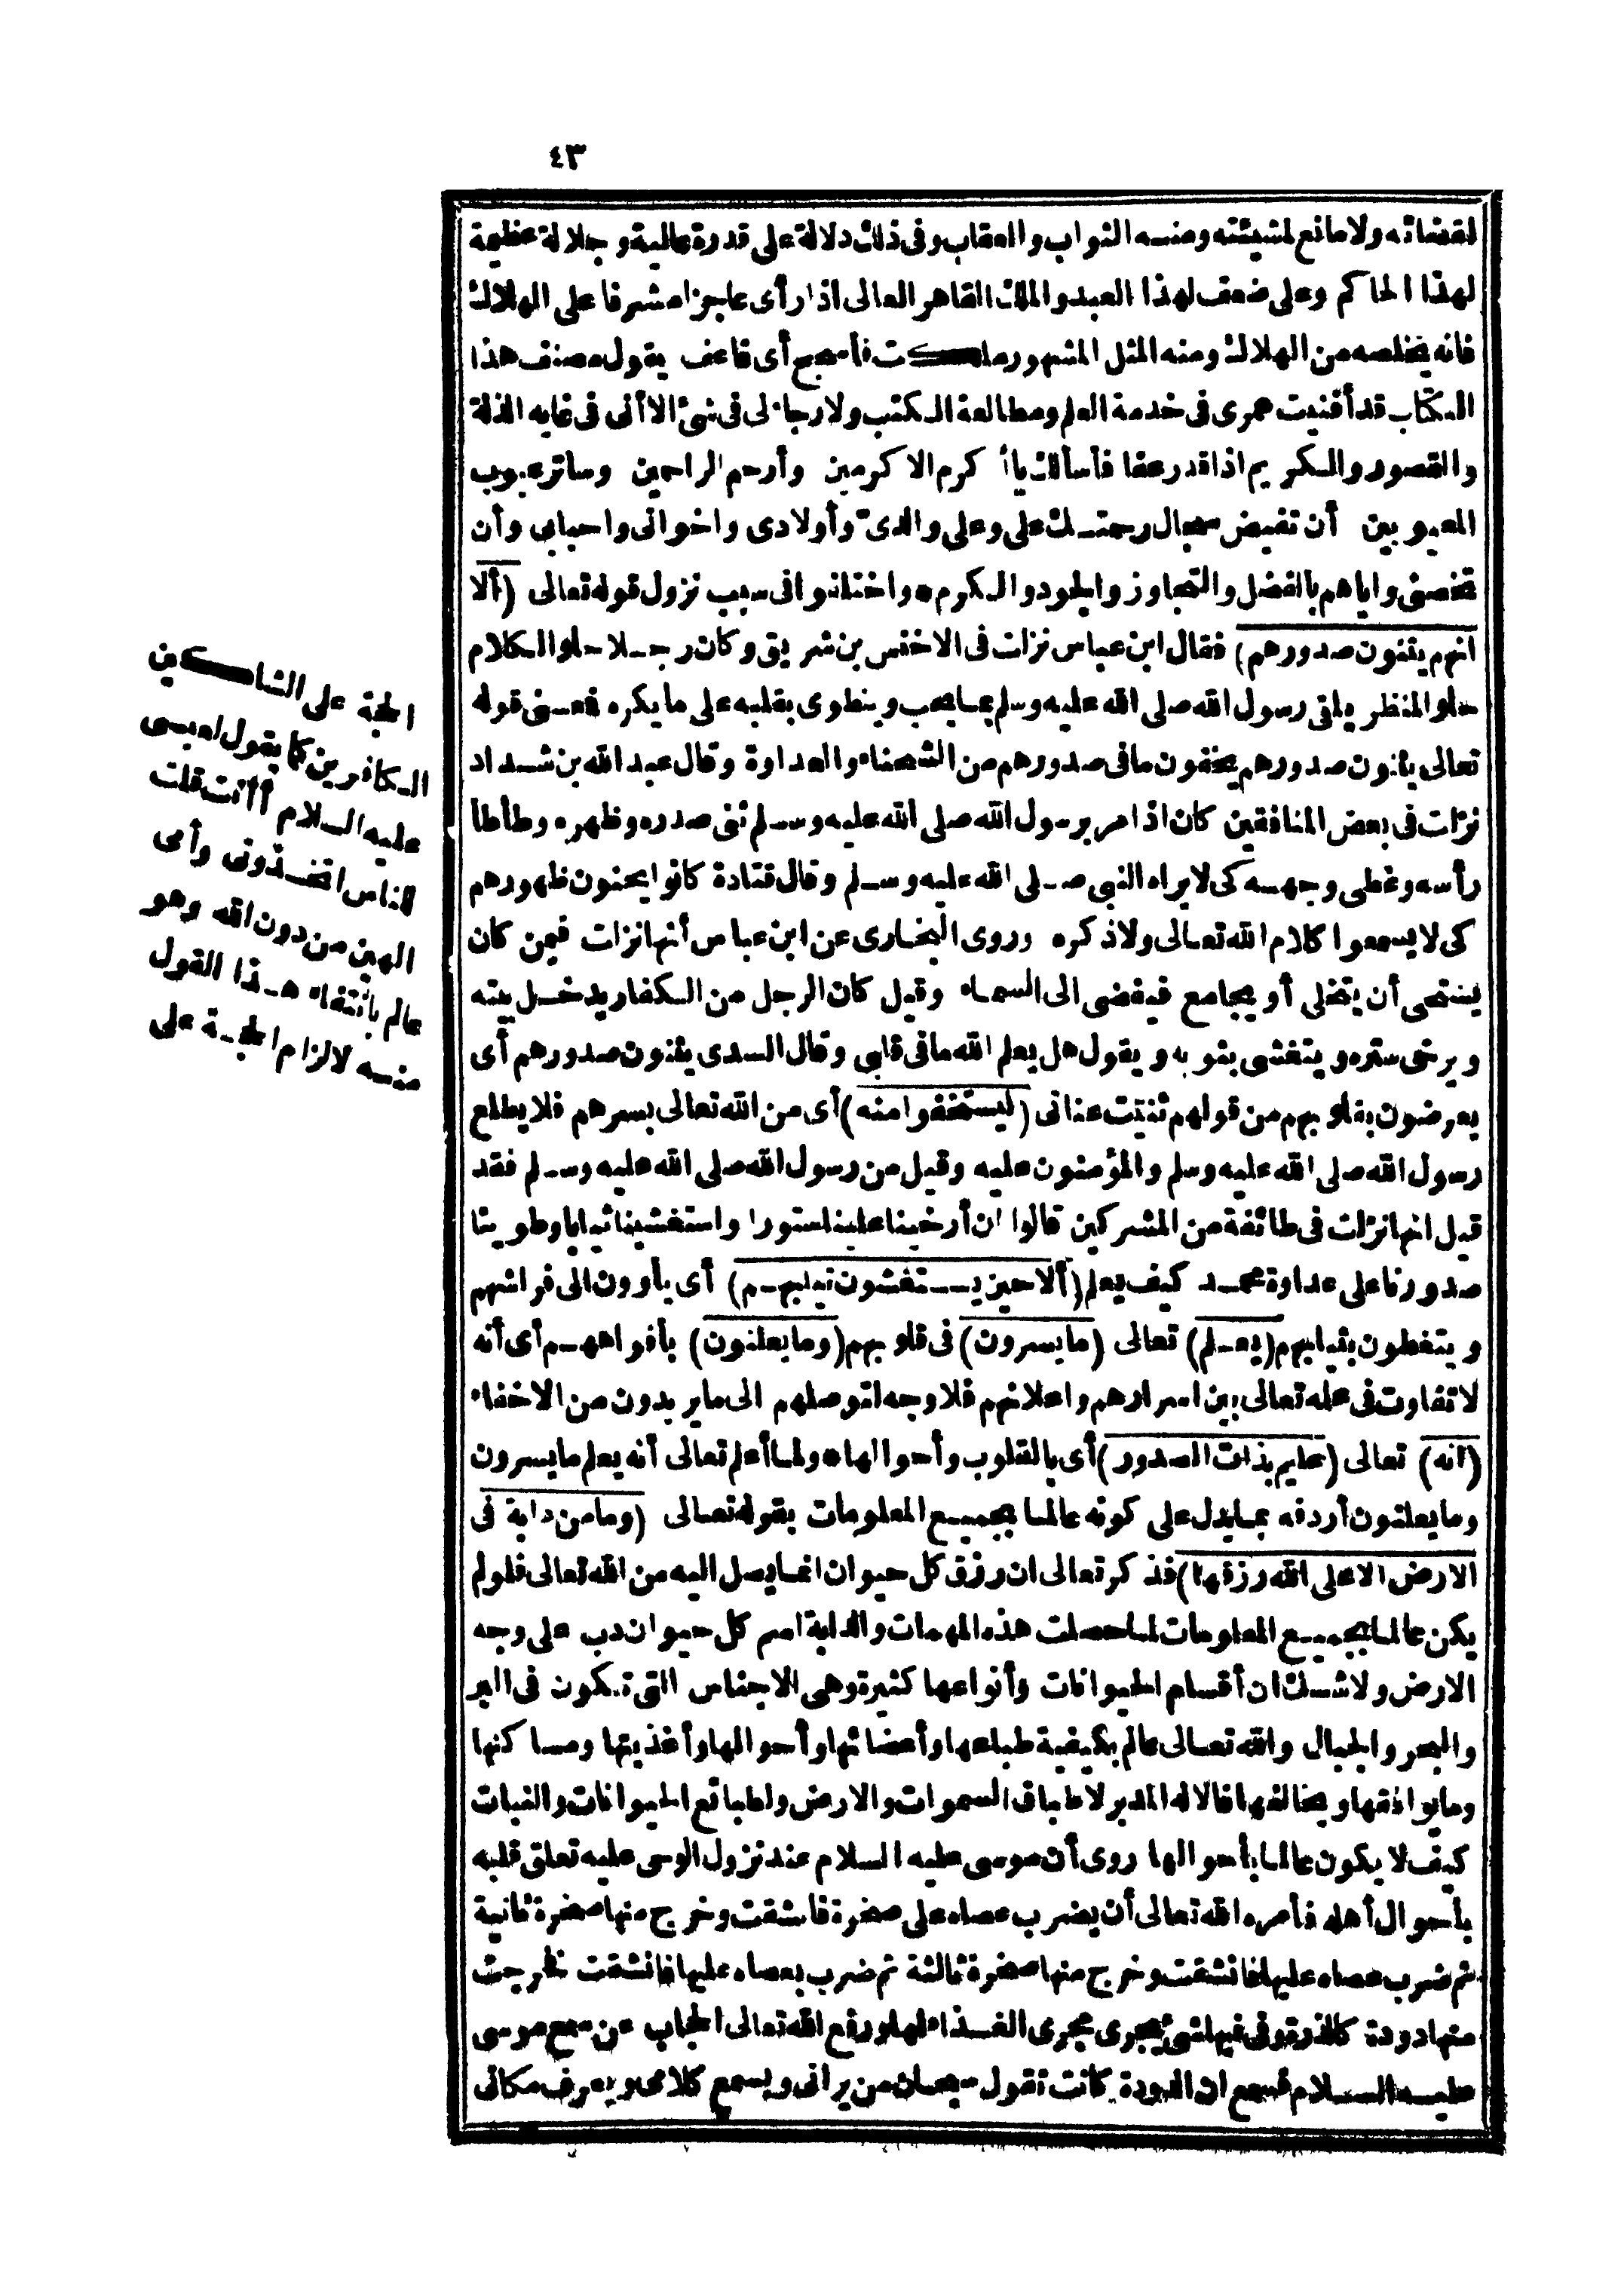 ٤٣
لقضائه ولا مانع لمشيئته ومنه الثواب والعقاب وفى ذلك دلالة على قدرة عالية وجلالة عظيمة
لهذا الحاكم وعلى ضعف لهذا العبد والملك القاهر العالى اذا رأى عاجزا مشرفا على الهلاك
فانه يخلصه من الهلاك ومنه المثل المشهور ملكت فأسجح أى فاعف يقول مصنف هذا
الكتاب قد أفنيت عمرى فى خدمة العلم ومطالعة الكتب ولا رجاء لى فى شئ الا أنى فى غاية الذلة
والقصور والكريم اذا قدر عفا فأسألك يا أكرم الاكرمين وأرحم الراحمين وساتر عيوب
المعيوبين أن تفيض سجال رحمتك على وعلى والدىّ وأولادى واخوانى واحبابى وأن
تخصنى واياهم بالفضل والتجاوز والجود والكرم * واختلفوا فى سبب نزول قوله تعالى (ألا
انهم يثنون صدورهم) فقال ابن عباس نزلت فى الاخنس بن شريق وكان رجلا حلو الكلام
حلو المنظر يلقى رسول الله صلى الله عليه وسلم بما يحب وينطوى بقلبه على ما يكره فمعنى قوله
تعالى يثنون صدورهم يخفون ما فى صدورهم من الشحناء والعداوة وقال عبد الله بن شداد
نزلت فى بعض المنافقين كان اذا مر برسول الله صلى الله عليه وسلم ثنى صدره وظهره وطأطأ
رأسه وغطى وجهه كى لا يراه النبى صلى الله عليه وسلم وقال قتادة كانوا يحنون ظهورهم
كى لا يسمعوا كلام الله تعالى ولا ذكره وروى البخارى عن ابن عباس أنها نزلت فيمن كان
يستحى أن يتخلى أو يجامع فيفضى الى السماء وقيل كان الرجل من الكفار يدخل بيته
ويرخى ستره ويتغشى بثوبه ويقول هل يعلم الله ما فى قلبى وقال السدى يثنون صدورهم أى
يعرضون بقلوبهم من قولهم ثنيت عنانى (ليستخفوا منه) أى من الله تعالى بسرهم فلا يطلع
رسول الله صلى الله عليه وسلم والمؤمنون عليه وقيل من رسول الله صلى الله عليه وسلم فقد
قيل انها نزلت فى طائفة من المشركين قالوا ان أرخينا علينا ستورا واستغشينا ثيابا وطوينا
صدورنا على عداوة محمد كيف يعلم (ألا حين يستغشون ثيابهم) أى يأوون الى فراشهم
ويتغطون بثيابهم (يعلم) تعالى (ما يسرون) فى قلوبهم (وما يعلنون) بأفواههم أى أنه
لا تفاوت فى علمه تعالى بين اسرارهم واعلانهم فلا وجه لتوصلهم الى ما يريدون من الاخفاء
(انه) تعالى (عليم بذات الصدور) أى بالقلوب وأحوالها * ولما أعلم تعالى أنه يعلم ما يسرون
وما يعلنون أردفه بما يدل على كونه عالما بجميع المعلومات بقوله تعالى (وما من دابة فى
الارض الا على الله رزقها) فذكر تعالى ان رزق كل حيوان انما يصل اليه من الله تعالى فلو لم
يكن عالما بجميع المعلومات لما حصلت هذه المهمات والدابة اسم كل حيوان دب على وجه
الارض ولا شك ان أقسام الحيوانات وأنواعها كثيرة وهى الاجناس التى تكون فى البر
والبحر والجبال والله تعالى عالم بكيفية طباعها وأعضائها وأحوالها وأغذيتها ومساكنها
وما يوافقها ويخالفها فالاله المدبر لاطباق السموات والارض ولطبائع الحيوانات والنبات
كيف لا يكون عالما بأحوالها روى أن موسى عليه السلام عند نزول الوحى عليه تعلق قلبه
بأحوال أهله فأمره الله تعالى أن يضرب عصاه على صخرة فانشقت وخرج منها صخرة ثانية
ثم ضرب عصاه عليها فانشقت وخرج منها صخرة ثالثة ثم ضرب بعصاه عليها فانشقت فخرجت
منها دودة كالذرة وفى فيها شئ يجرى مجرى الغذاء لها ورفع الله تعالى الحجاب عن سمع موسى
عليه السلام فسمع ان الدودة كانت تقول سبحان من يرانى ويسمع كلامى ويعرف مكانى
الحجة على الشاكين
الكافرين كما يقول لعيسى
عليه السلام أأنت قلت
للناس اتخذونى وأمى
الهين من دون الله وهو
عالم بانتفاء هذا القول
منه لالزام الحجة على